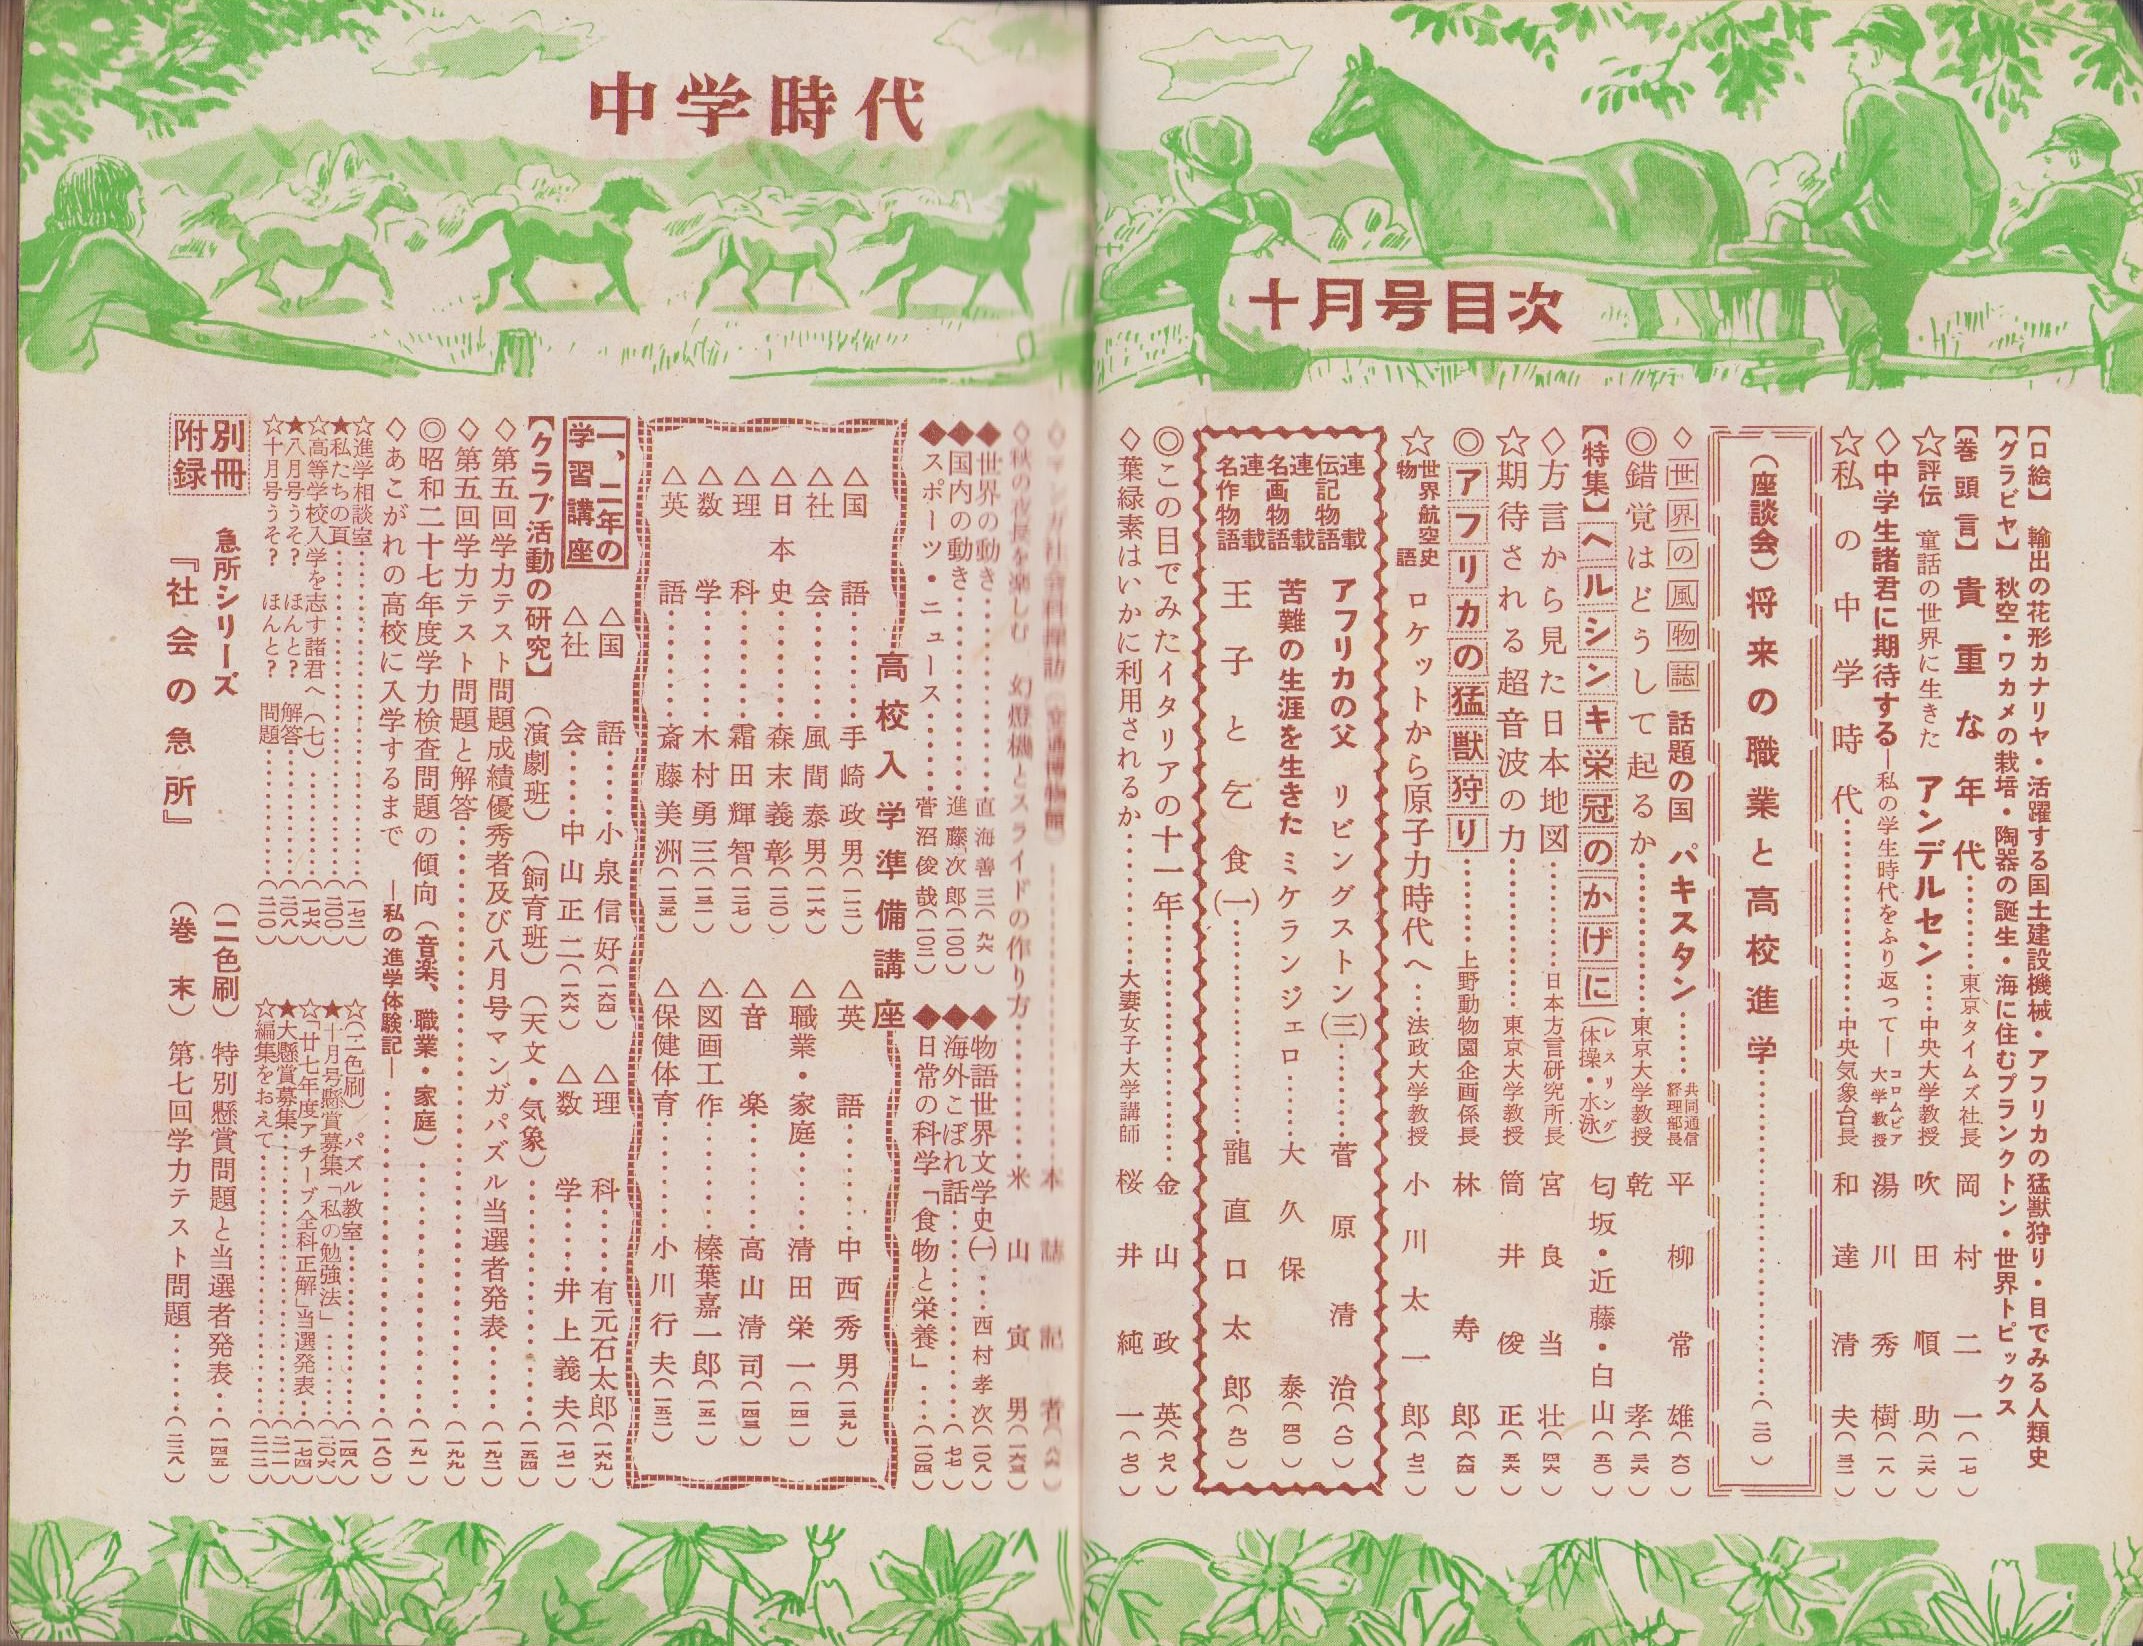 中学時代
十月号目次
【口絵】 輸出の花形カナリヤ・活躍する国土建設機械・アフリカの猛獣狩り・目でみる人類史
【グラビヤ】 秋空・ワカメの栽培・陶器の誕生・海に住むプランクトン・世界トピックス
【巻頭言】 貴重な年代………東京タイムズ社長 岡村二一(一七)
☆評伝 童話の世界に生きた アンデルセン……中央大学教授 吹田順助(二六)
◇中学生諸君に期待する―私の学生時代をふり返って― コロムビア大学教授 湯川秀樹(一八)
☆私の中学時代………中央気象台長 和達清夫(三二)
(座談会) 将来の職業と高校進学………(二〇)
◇世界の風物誌 話題の国 パキスタン……共同通信経理部長 平柳常雄(六〇)
◎錯覚はどうして起るか………東京大学教授 乾孝(三六)
【特集】ヘルシンキ栄冠のかげに(体操・レスリング・水泳) 匂坂・近藤・白山(五〇)
◇方言から見た日本地図………日本方言研究所長 宮良当壮(四六)
☆期待される超音波の力………東京大学教授 筒井俊正(五六)
◎アフリカの猛獣狩り………上野動物園企画係長 林寿郎(六四)
☆世界航空史物語 ロケットから原子力時代へ…法政大学教授 小川太一郎(七二)
連載伝記物語 アフリカの父 リビングストン(三)………菅原清治(八〇)
連載名画物語 苦難の生涯を生きた ミケランジェロ………大久保泰(四〇)
連載名作物語 王子と乞食(一)………龍直口太郎(九〇)
◎この目でみたイタリアの十一年………金山政英(七八)
◇葉緑素はいかに利用されるか………大妻女子大学講師 桜井純一(七〇)
本誌記者
◇秋の夜長を楽しむ 幻燈機とスライドの作り方………米山寅男(一六三)
◆世界の動き………直海善三(九六)
◆国内の動き………進藤次郎(一〇〇)
◆スポーツ・ニュース………菅沼俊哉(一〇二)
◆物語世界文学史(一)…西村孝次(一〇八)
◆海外こぼれ話………(七七)
◆日常の科学「食物と栄養」…(一〇四)
高校入学準備講座
△国語………手崎政男(一一二)
△社会………風間泰男(一一六)
△日本史………森末義彰(一二〇)
△理科………霜田輝智(一二七)
△数学………木村勇三(一三一)
△英語………斎藤美洲(一三五)
△英語………中西秀男(一三九)
△職業・家庭………清田栄一(一四一)
△音楽………高山清司(一四三)
△図画工作………榛葉嘉一郎(一五一)
△保健体育………小川行夫(一五二)
一、二年の学習講座
△国語………小泉信好(一六四)
△社会………中山正二(一六六)
△理科………有元石太郎(一六九)
△数学………井上義夫(一七一)
【クラブ活動の研究】 (演劇班) (飼育班) (天文・気象)………(一五四)
◇第五回学力テスト問題成績優秀者及び八月号マンガパズル当選者発表………(一九二)
◇第五回学力テスト問題と解答………(一九九)
◎昭和二十七年度学力検査問題の傾向(音楽、職業・家庭)………(一九一)
◇あこがれの高校に入学するまで ―私の進学体験記―………(一八〇)
☆進学相談室………(一七二)
★私たちの頁………(二〇〇)
☆高等学校入学を志す諸君へ(七)………(一七六)
★八月号うそ? ほんと? 解答………(二〇八)
☆十月号うそ? ほんと? 問題………(二一〇)
☆(二色刷) パズル教室………(一四八)
★十月号懸賞募集「私の勉強法」………(二〇六)
☆「廿七年度アチーブ全科正解」当選発表…(一七四)
★大懸賞募集………(二一一)
☆編集をおえて………(二一二)
別冊附録
急所シリーズ
『社会の急所』
(二色刷) 特別懸賞問題と当選者発表…(一四五)
(巻末) 第七回学力テスト問題………(二二八)